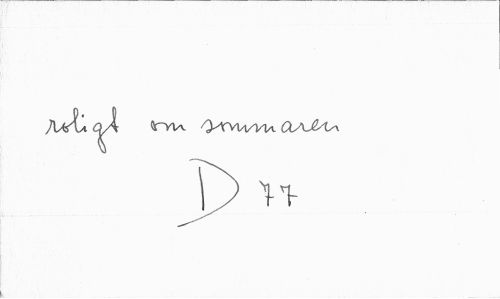 roligt om sommaren
D 77